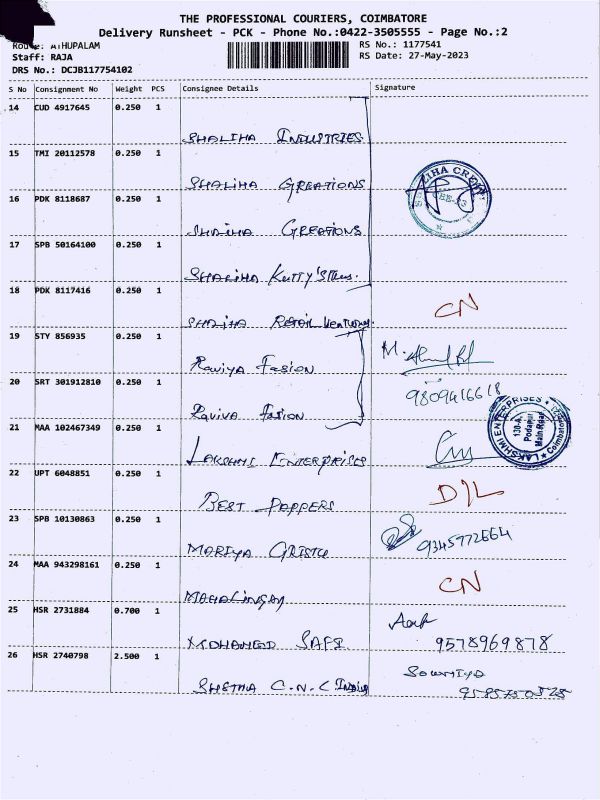 THE PROFESSIONAL COURIERS, COIMBATORE
Delivery Runsheet - PCK - Phone No.:0422-3505555 - Page No.:2
Route: ATHUPALAM RS No.: 1177541
Staff: RAJA RS Date: 27-May-2023
DRS No.: DCJB117754102
S No Consignment No Weight PCS Consignee Details Signature
14 CUD 4917645 0.250 1
SHALIHA INDUSTRIES
15 TMI 20112578 0.250 1
SHALIHA CREATIONS
16 PDK 8118687 0.250 1
SHALIHA CREATIONS
17 SPB 50164100 0.250 1
SHALIHA KUTTY'S
18 PDK 8117416 0.250 1
SHALIHA RETAIL Ventures CN
19 STY 856935 0.250 1
Raviya Fasion M.
20 SRT 301912810 0.250 1 9809416618
Raviya Fasion
LAKSHMI ENTERPRISES
Podanur
Main Road
Coimbatore
21 MAA 102467349 0.250 1
LAKSHMI ENTERPRISES
22 UPT 6048851 0.250 1
BEST PAPPERS D/L
23 SPB 10130863 0.250 1
MARIYA 9345772664
24 MAA 943298161 0.250 1
MAHALINGAM CN
25 HSR 2731884 0.700 1
MOHAMEED SAFI 9578969878
26 HSR 2740798 2.500 1 Sowmiya
C.N.C India